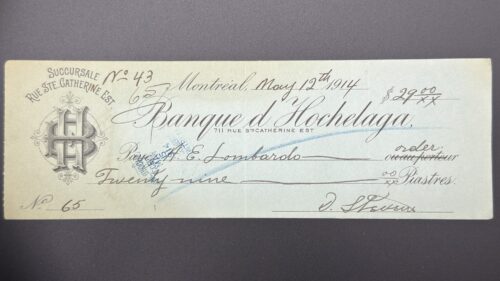 SUCCURSALE
RUE STE CATHERINE EST
No 43
65
Montréal, May 12th 1914
$ 29 00/xx
Banque d'Hochelaga,
711 RUE STE CATHERINE EST
Payez H. E. Lombardo order
ou au porteur
Twenty nine 00/xx Piastres.
No 65